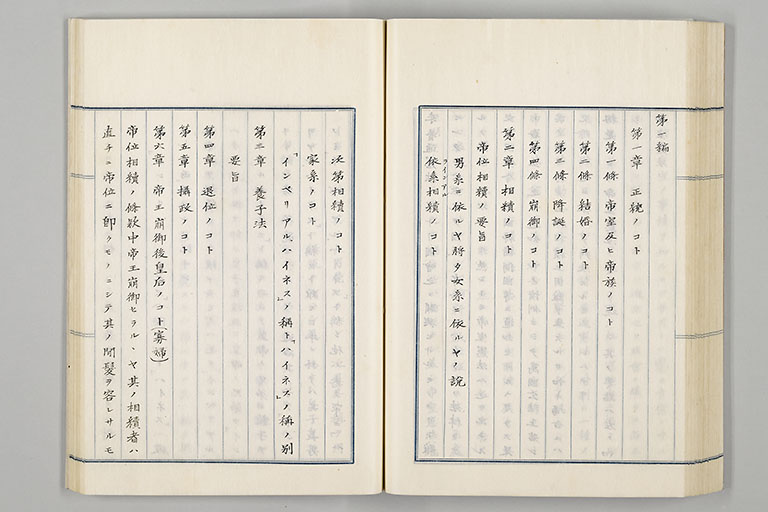 第一編
第一章 正統ノコト
第一條 帝室及ヒ帝族ノコト
第二條 結婚ノコト
第三條 降誕ノコト
第四條 崩御ノコト
第二章 相續ノコト
帝位相續ノ要旨
男系ニ依ルヤ將タ女系ニ依ルヤノ說
依系相續ノコト
次第相續ノコト
家系ノコト
「インペリアル、ハイネス」ノ稱ト「ハイネス」ノ稱ノ別
第三章 養子法
要旨
第四章 退位ノコト
第五章 攝政ノコト
第六章 帝王崩御後皇后ノコト(寡婦)
帝位相續ノ條欵中帝王崩御セラルヽヤ其ノ相續者ハ
直チニ帝位ニ卽クモノニシテ其ノ間髮ヲ容レサルモ